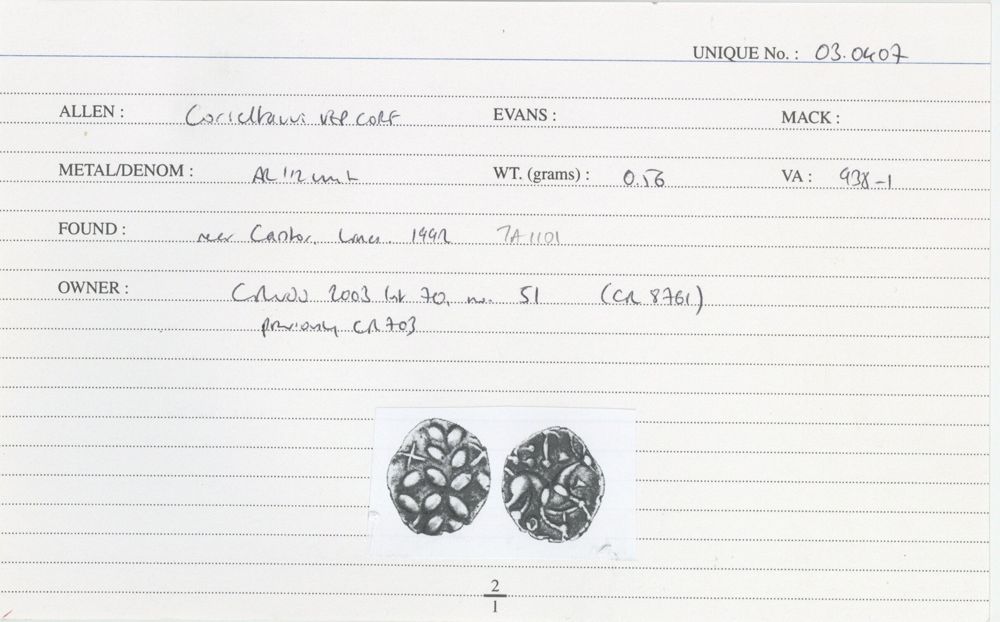 UNIQUE No. : 03.0407
ALLEN : Corieltauvi VEP CORF EVANS : MACK :
METAL/DENOM : AR 1/2 unit WT. (grams) : 0.56 VA : 938-1
FOUND : near Caistor, Lincs. 1992 TA1101
OWNER : 2003 list 70, no. 51 (CR 8761)
previously CR 703
2
1